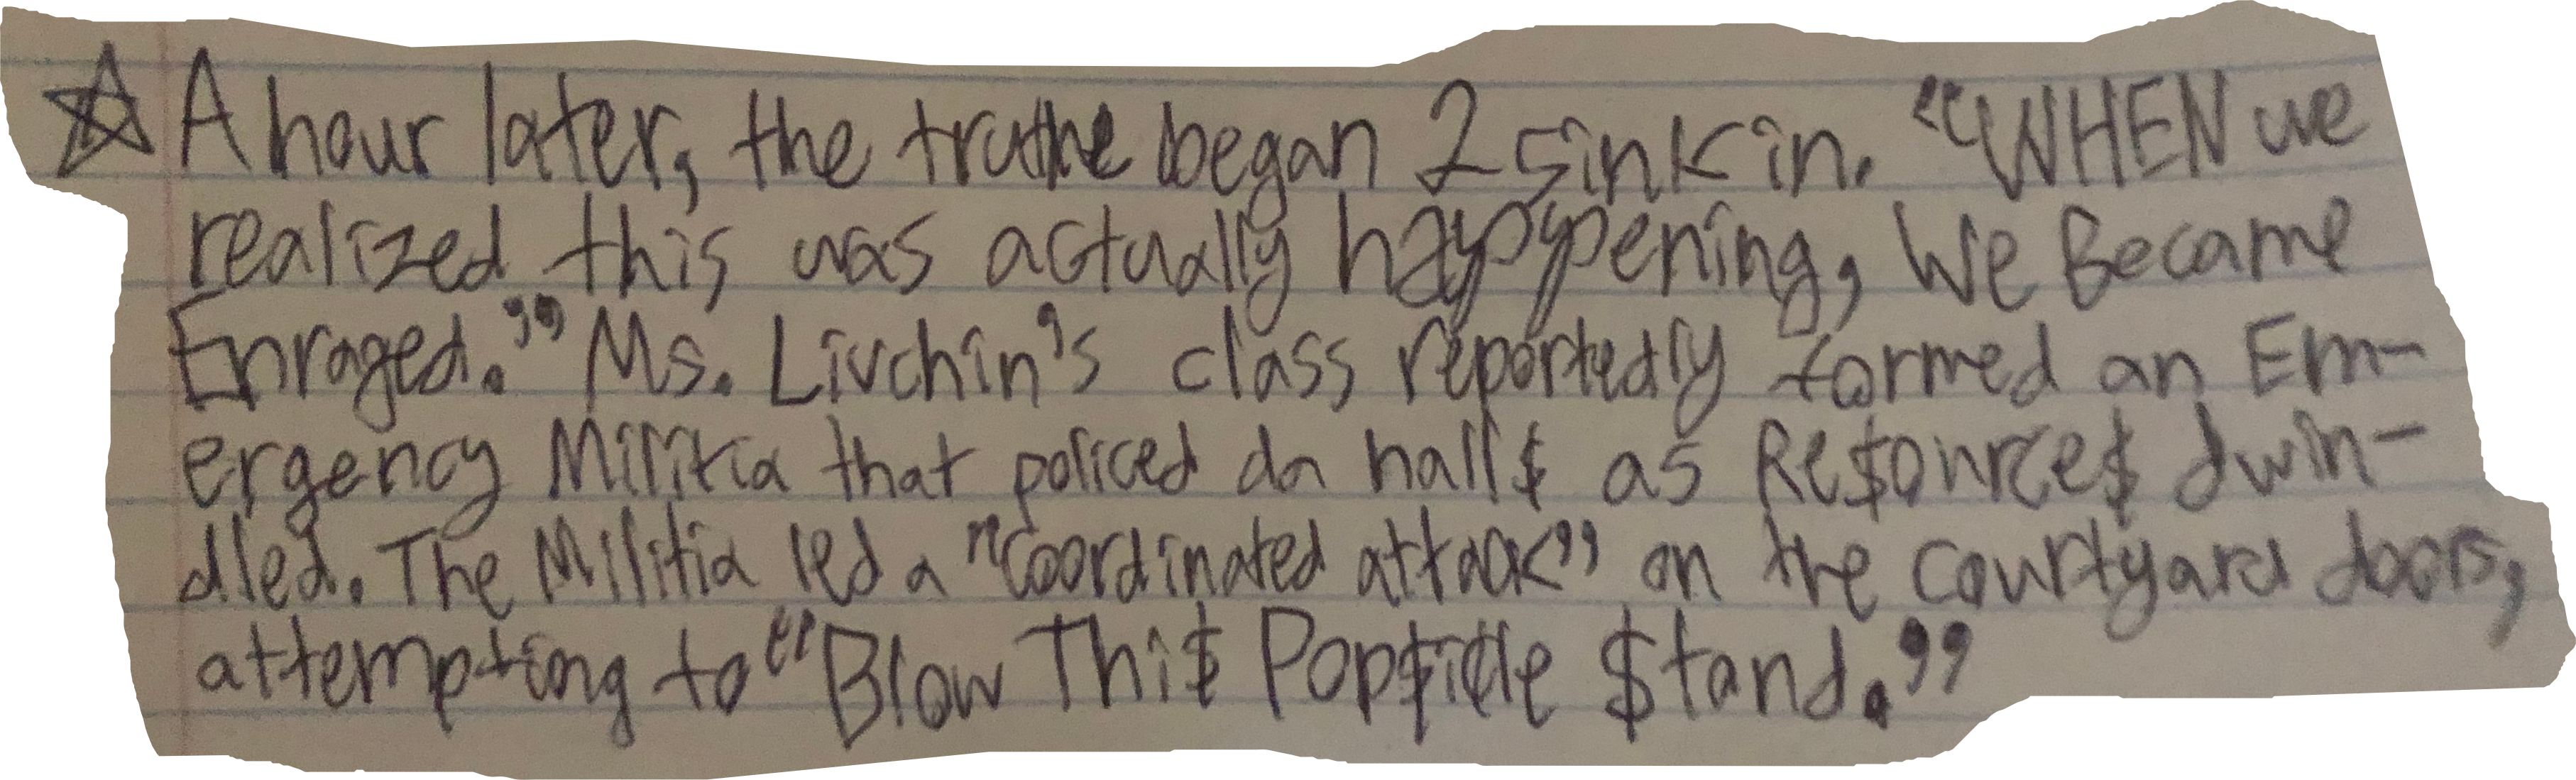 ☆ A hour later, the truthe began 2 sink in. "WHEN we
realized this was actually happening, We Became
Enraged." Ms. Livchin's class reportedly formed an Em-
ergency Militia that policed da hall$ as Re$ource$ dwin-
dled. The Militia led a "coordinated attack" on the courtyard doors,
attempting to "Blow Thi$ Pop$icle $tand."